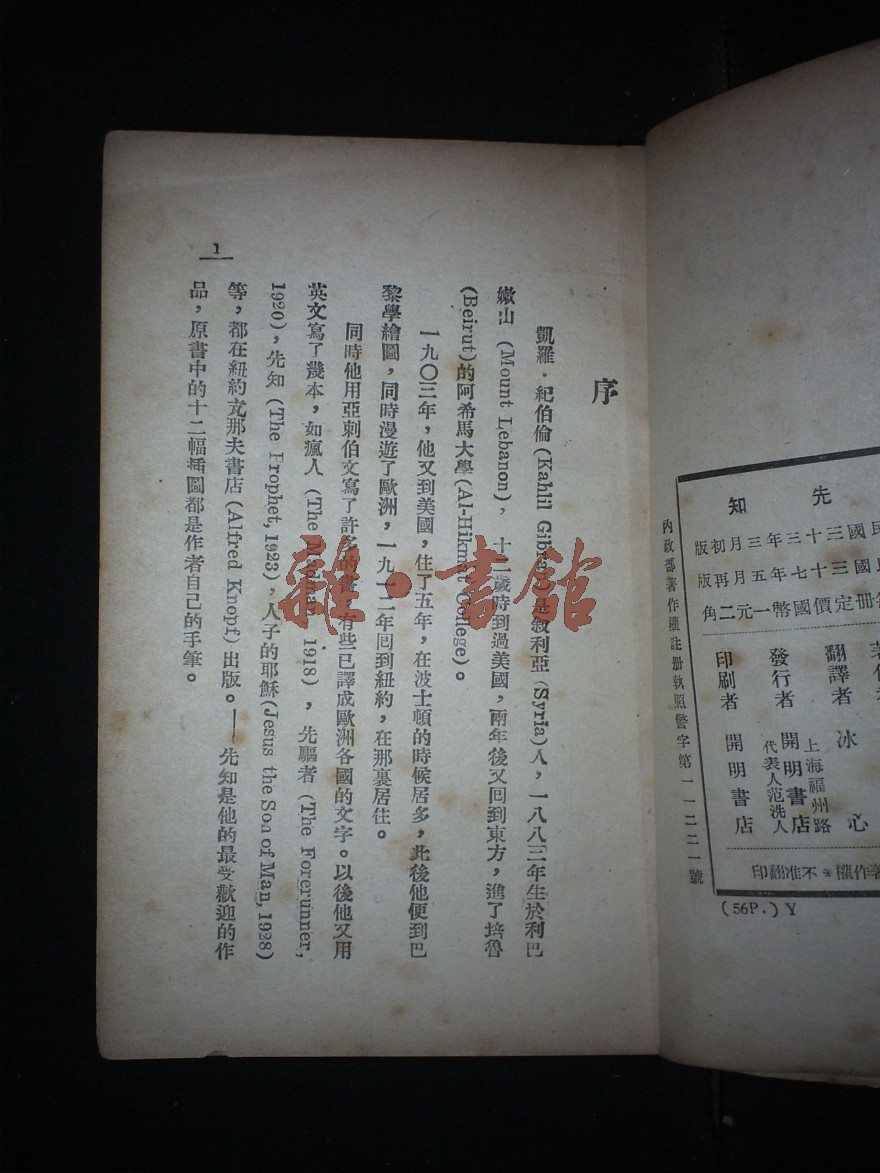 先知
民國三十三年三月初版
民國三十七年五月再版
每册定價國幣一元二角
翻譯者 冰心
發行者 開明書店
上海福州路
代表人范洗人
印刷者 開明書店
著作權・不准翻印
內政部著作權註册執照警字第一一二二一號
(56P.) Y
序
凱羅・紀伯倫(Kahlil Gibran)是叙利亞(Syria)人，一八八三年生於利巴
嫩山(Mount Lebanon)，十二歲時到過美國，兩年後又回到東方，進了培魯
(Beirut)的阿希馬大學(Al-Hikmat College)。
一九〇三年，他又到美國，住了五年，在波士頓的時候居多，此後他便到巴
黎學繪圖，同時漫遊了歐洲，一九一二年回到紐約，在那裏居住。
同時他用亞剌伯文寫了許多的書，有些已譯成歐洲各國的文字。以後他又用
英文寫了幾本，如瘋人(The Madman, 1918)，先驅者(The Forerunner,
1920)，先知(The Prophet, 1923)，人子的耶穌(Jesus the Son of Man, 1928)
等，都在紐約克那夫書店(Alfred Knopf)出版。——先知是他的最受歡迎的作
品，原書中的十二幅插圖都是作者自己的手筆。
1
雜・書館